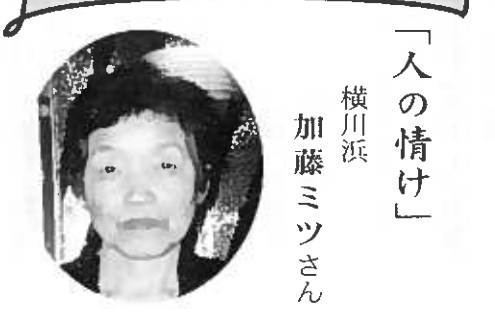 「人の情け」
横川浜
加藤ミツさん